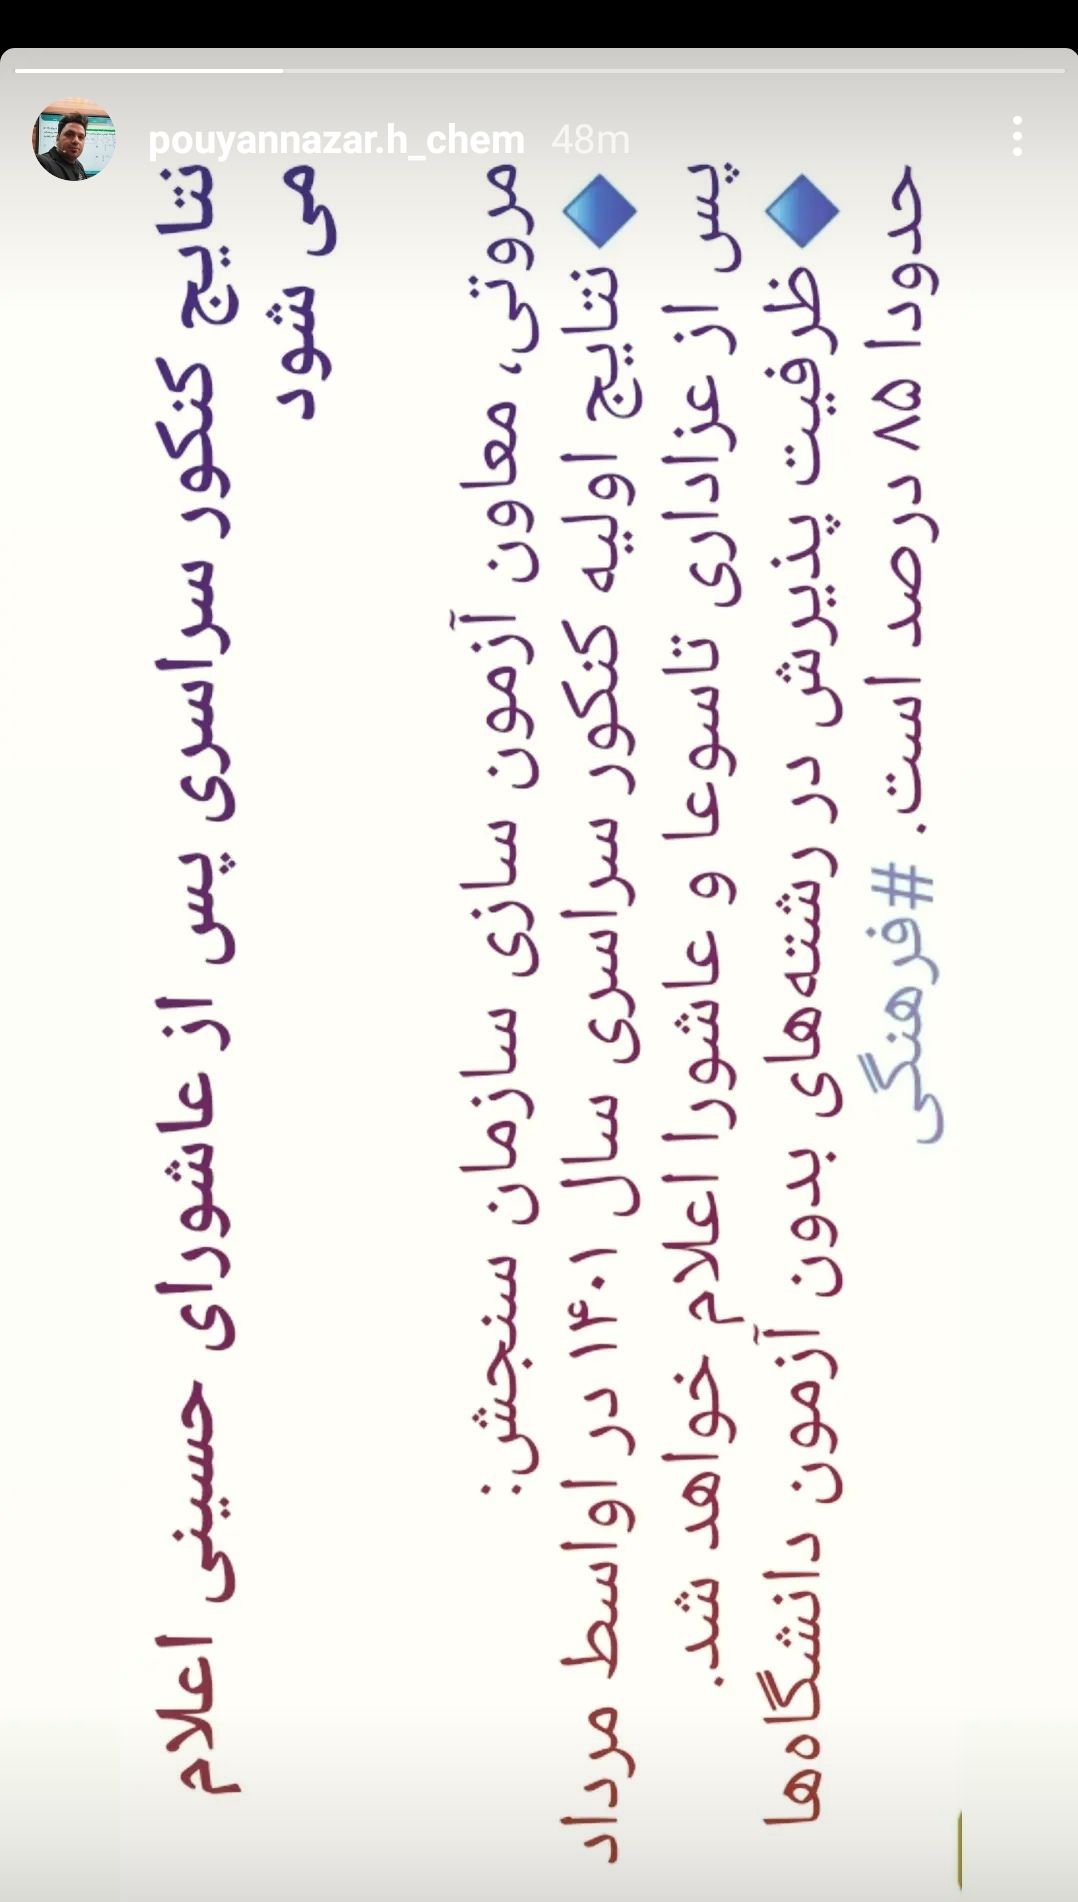 pouyannazar.h_chem 48m
نتایج کنکور سراسری پس از عاشورای حسینی اعلام
می شود
مروتی، معاون آزمون سازی سازمان سنجش:
🔷نتایج اولیه کنکور سراسری سال ۱۴۰۱ در اواسط مرداد
پس از عزاداری تاسوعا و عاشورا اعلام خواهد شد.
🔷ظرفیت پذیرش در رشته‌های بدون آزمون دانشگاه‌ها
حدودا ۸۵ درصد است. #فرهنگی